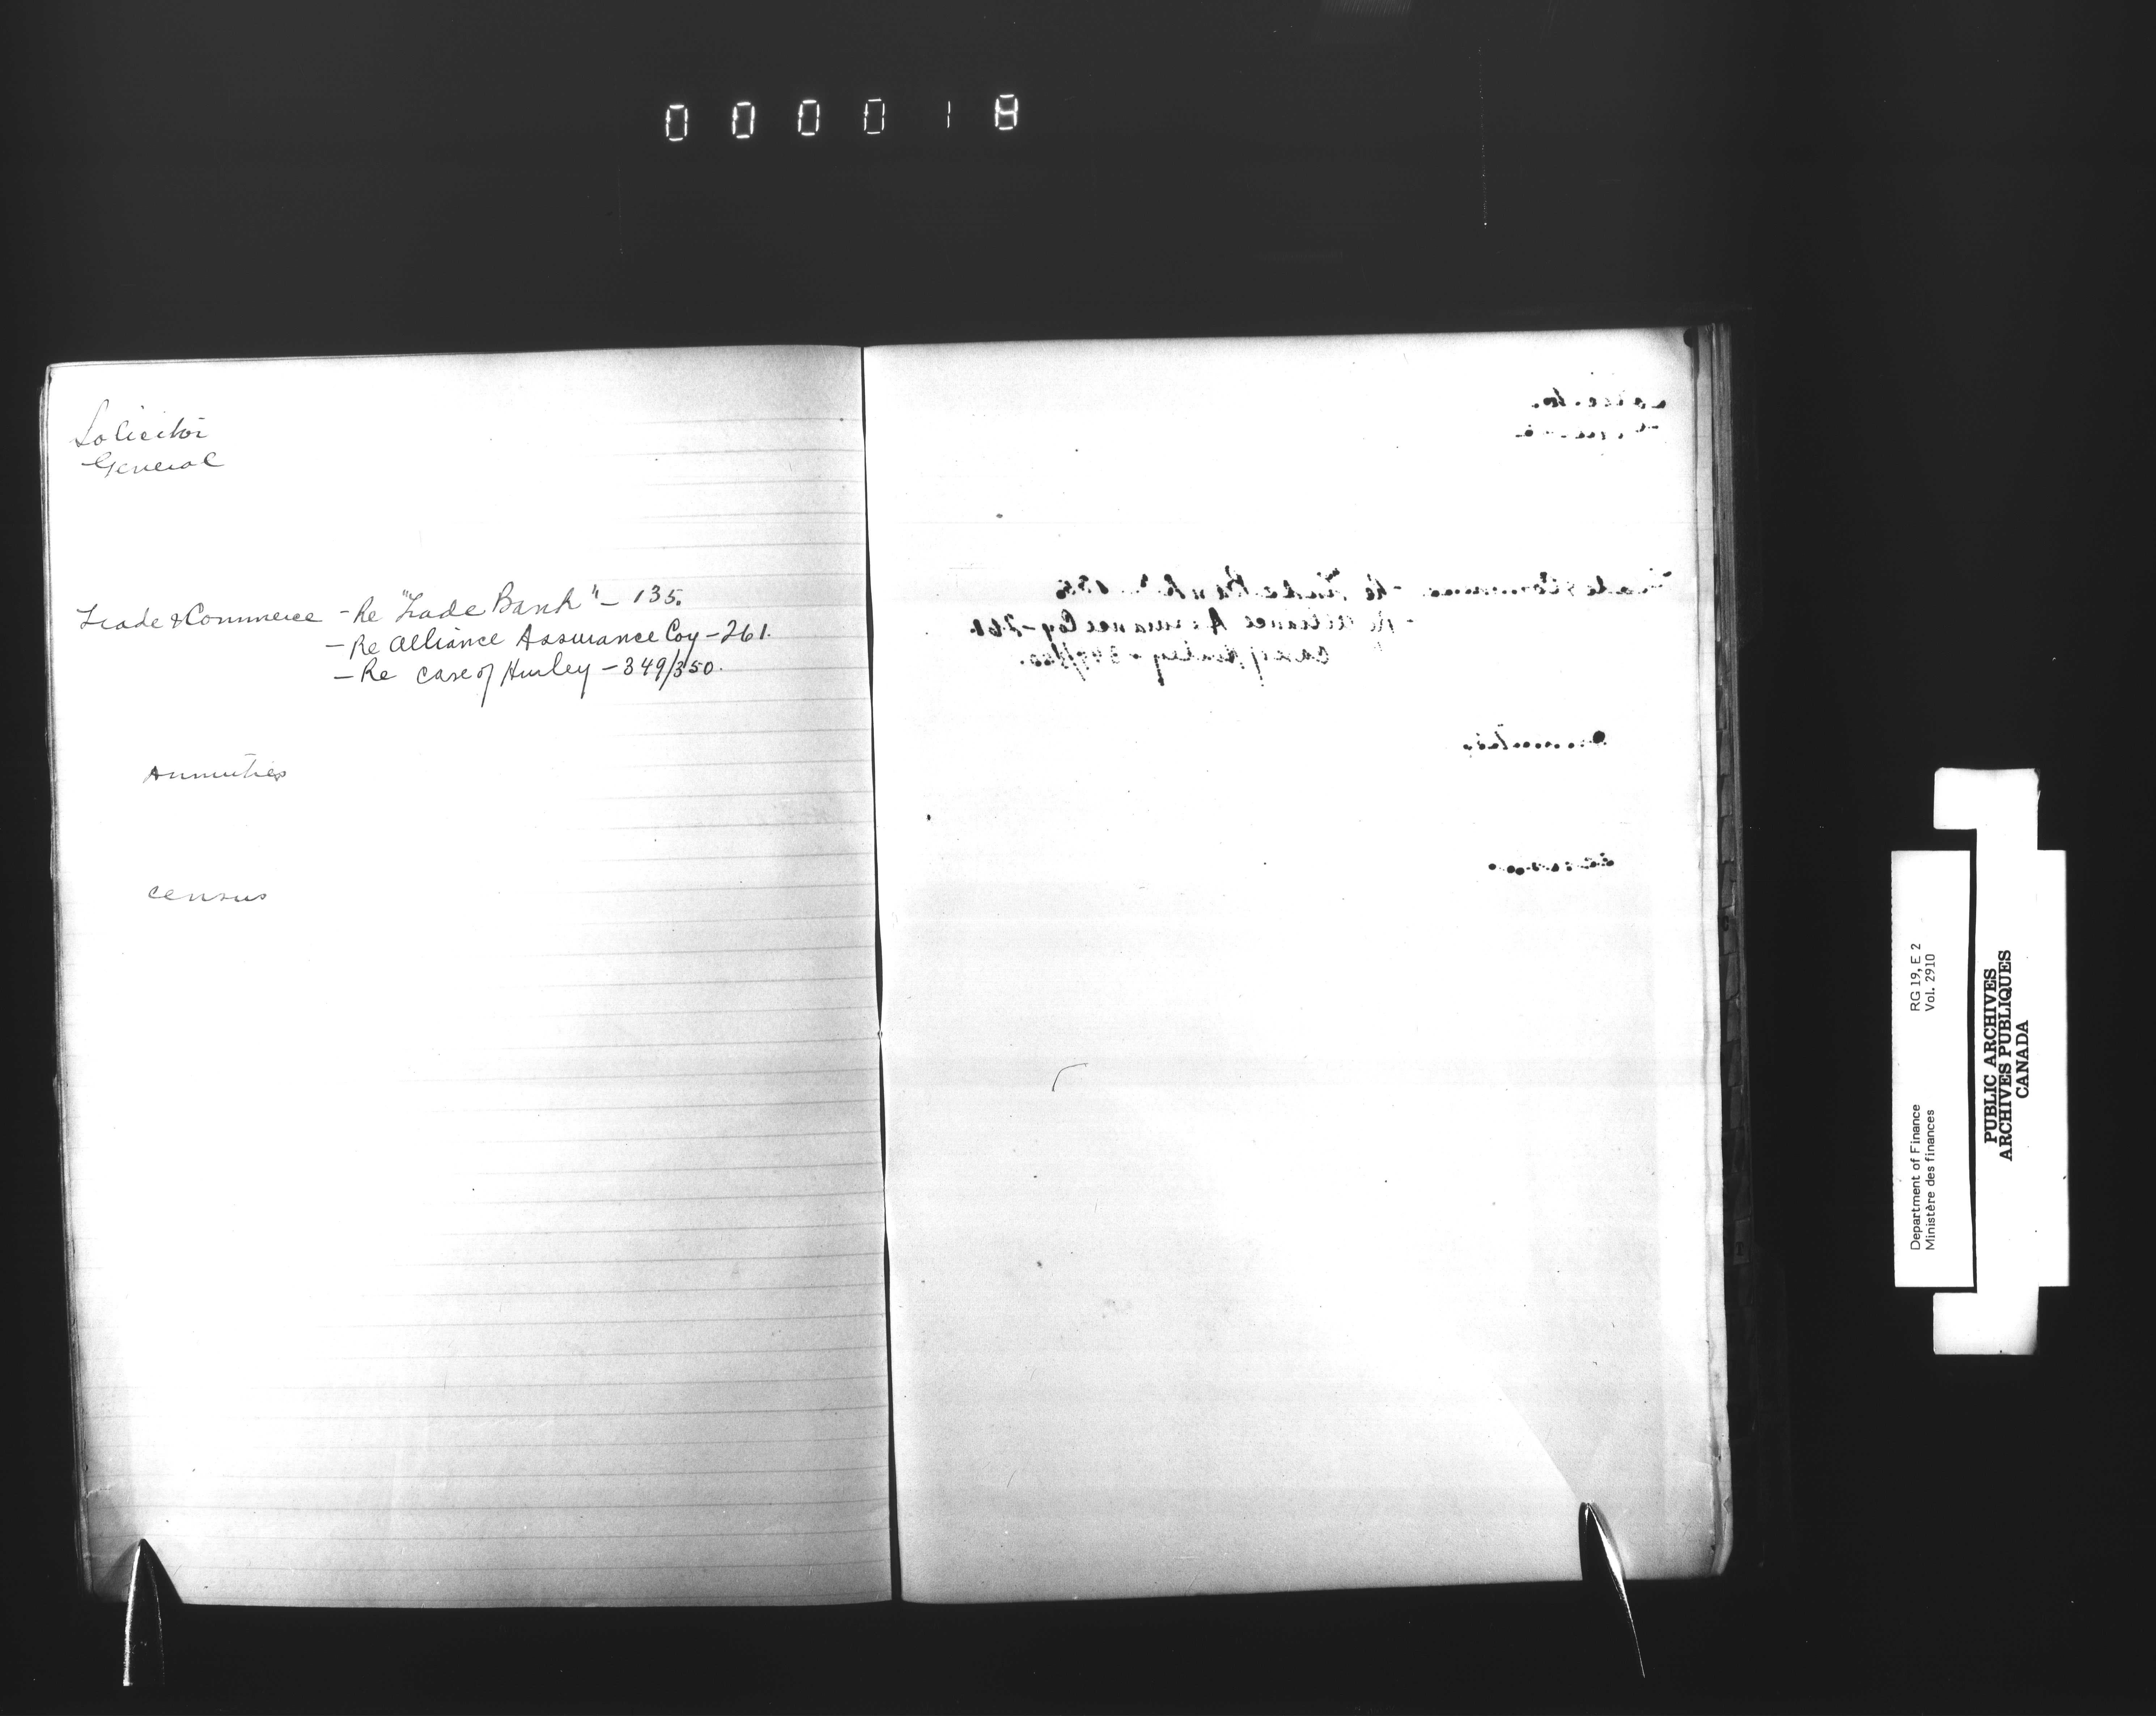 000018
Solicitor
General
Trade & Commerce - Re "Trade Bank" - 135.
- Re Alliance Assurance Coy - 261.
- Re case of Hurley - 349/350.
Annuities
Census
Department of Finance RG 19, E 2
Ministère des finances Vol. 2910
PUBLIC ARCHIVES
ARCHIVES PUBLIQUES
CANADA